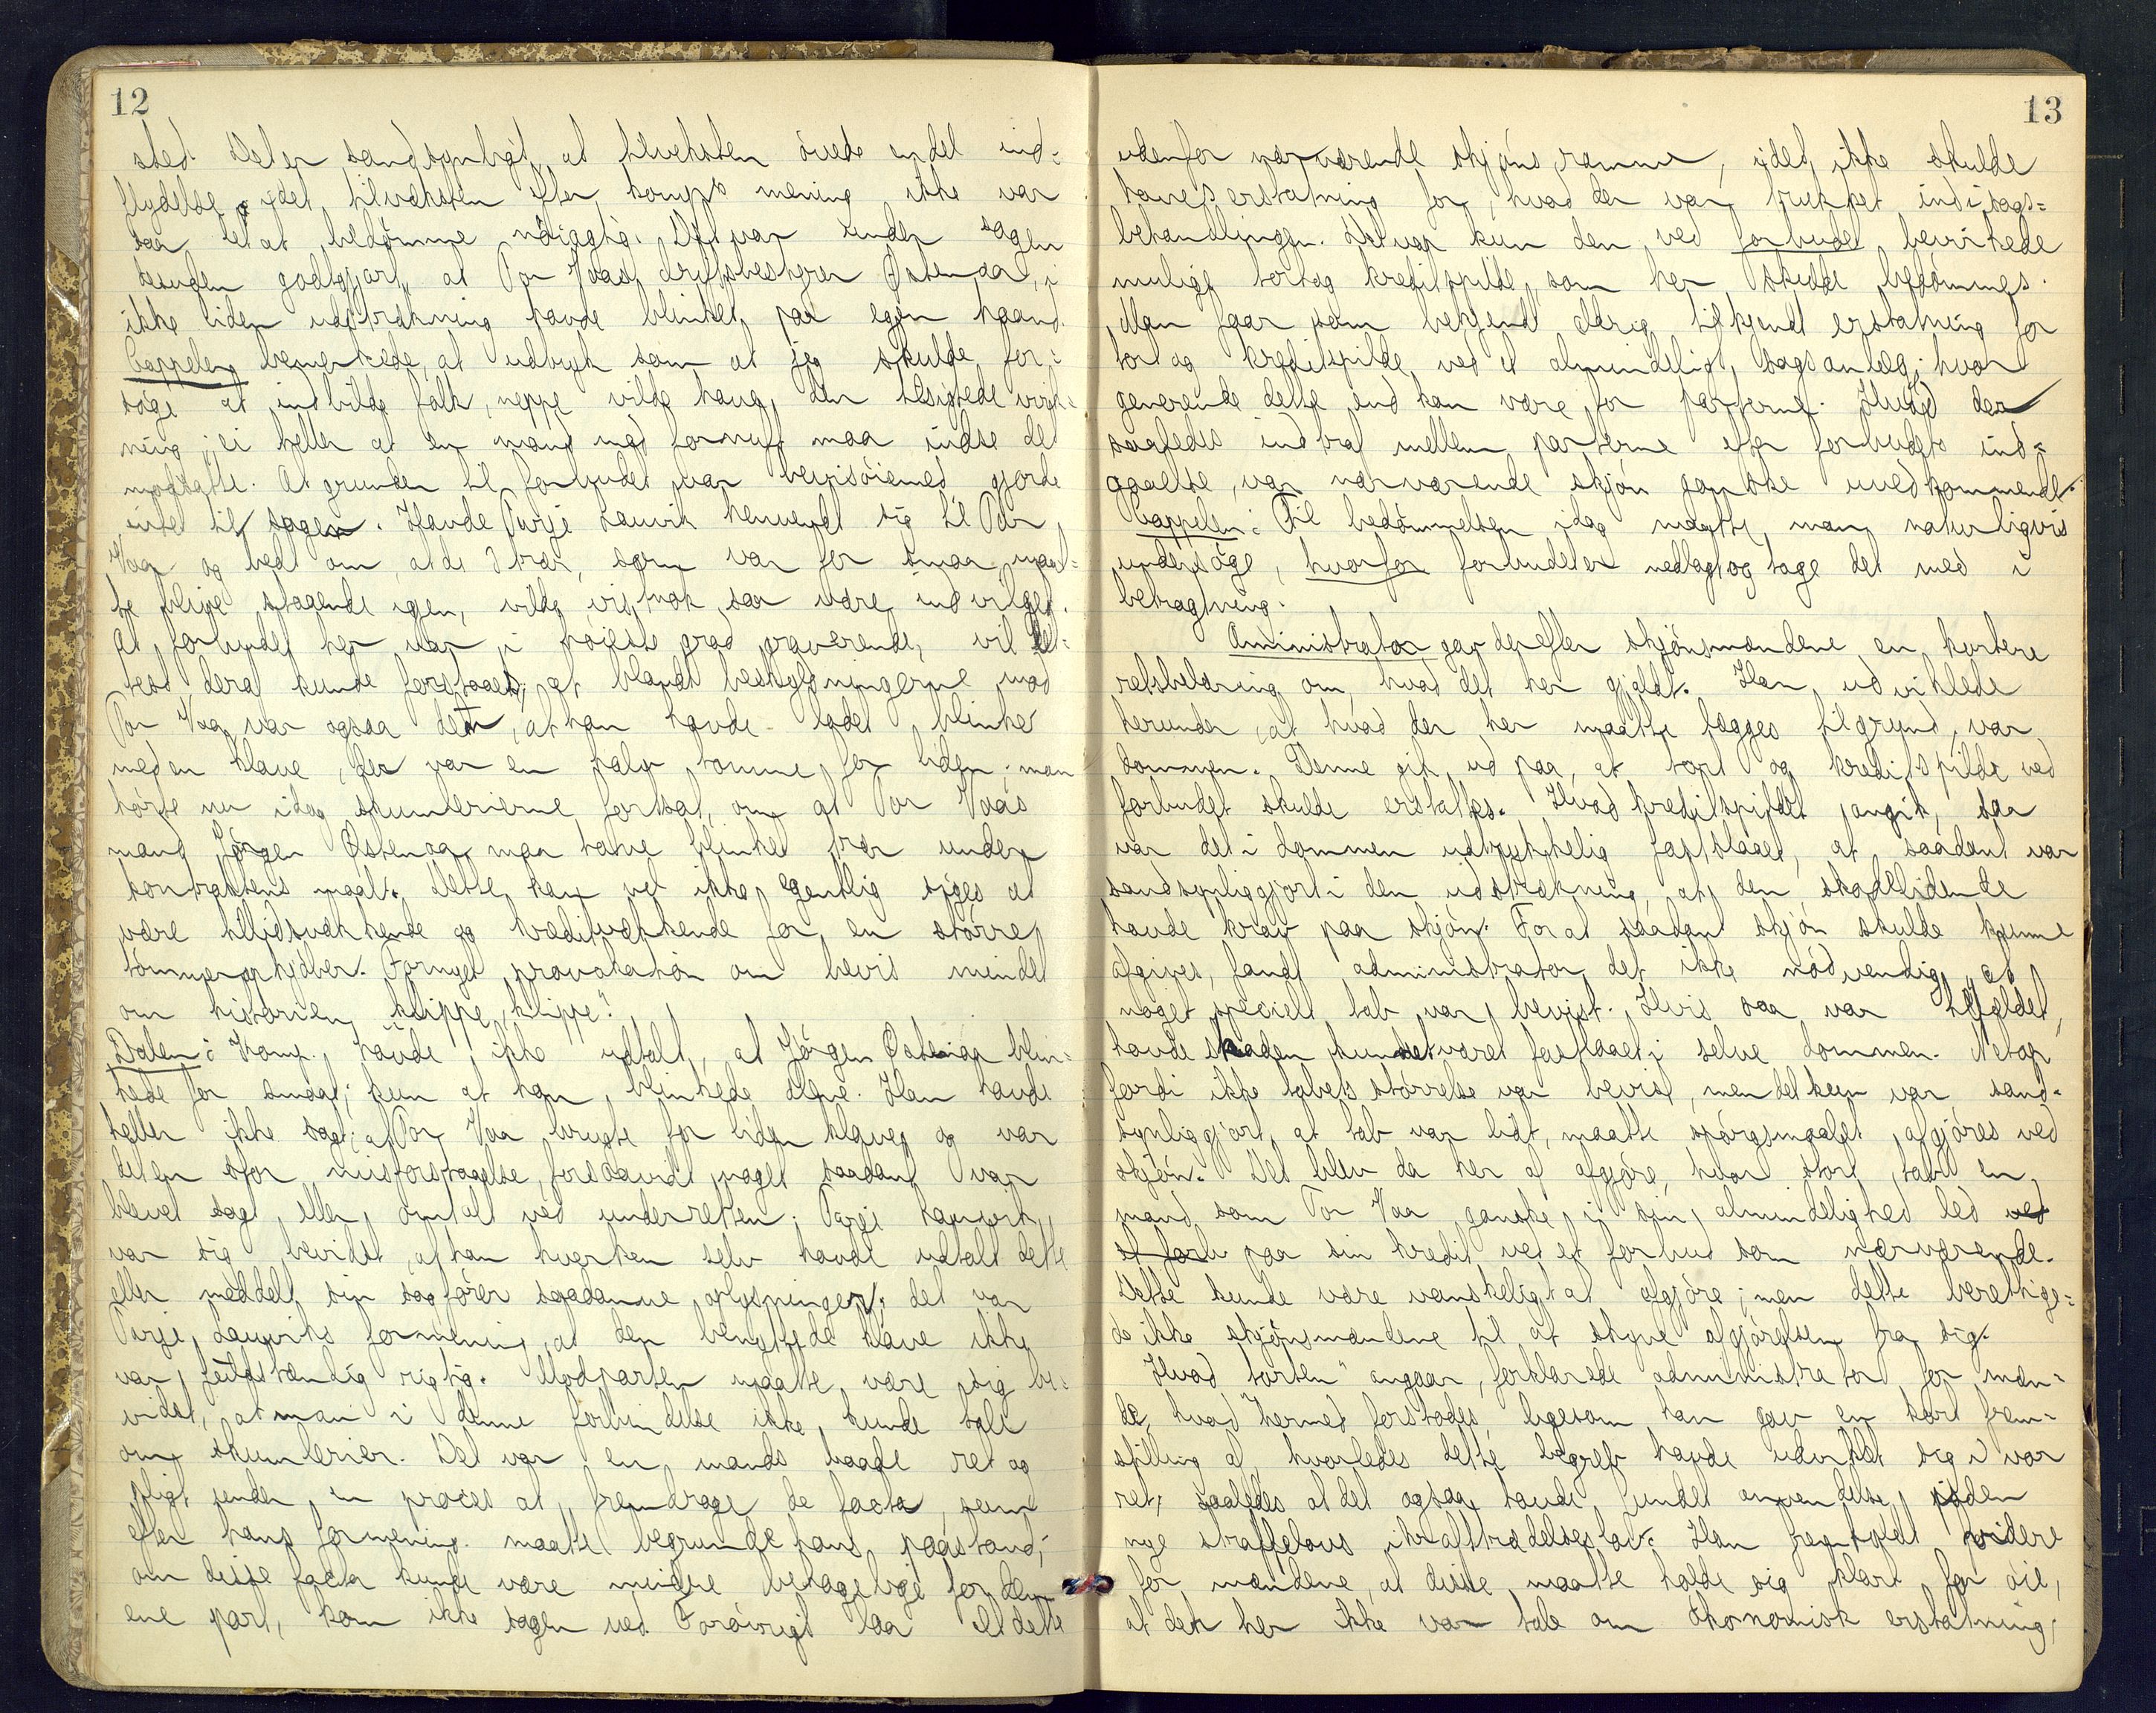 12
sted. Det er sandsynligt, at tilveksten övede endel ind=
flydelse, idet tilveksten efter komp's mening ikke var
saa let at bedömme nöiagtig. Det var under sagen
desuden godtgjort, at Tor Vaas driftsbestyrer Östenaa, i
ikke liden udstrækning havde blinket paa egen haand.
Cappelen bemerkede, at udtryk som at jeg skulde for=
söge at indbilde folk, neppe vilde have den tilsigtede virk=
ning; ei heller at en mand med fornuft maa indse det
modsatte. At grunden til forbudet var bevisöiemed gjorde
intet til sagen. Havde Tarje Lauvik henvendt sig til Tor
Vaa og bedt om, at de 3 trær, som var for smaa, maat=
te blive staaende igjen, vilde vistnok saa være indvilget.
At forbudet her var i höieste grad graverende, vil let=
test deraf kunde forstaaes, at blandt beskyldningerne mod
Tor Vaa var ogsaa den, at han havde ladet blinke
med en klave, der var en halv tomme for liden; man
hörte nu idag skumlerierne fortsat, om at Tor Vaas
mand Jörgen Östenaa maa have blinket trær under
kontraktens maal. Dette kan vel ikke egentlig siges at
være tillidsvækkende og kreditvækkende for en större
tömmeropkjöber. Fornyet provokation om bevis mindet
om historien "klippe, klippe".
Dalen: Komp. havde ikke udtalt, at Jörgen Östenaa blin=
kede for smaat; kun at han blinkede alene. Han havde
heller ikke sagt, at Tor Vaa brugte for liden klave og var
det en stor misforstaaelse, forsaavidt noget saadant var
blevet sagt eller omtalt ved underretten; Tarje Lauvik
var sig bevidst, at han hverken selv havde udtalt dette
eller meddelt sin sagförer saadanne oplysninger; det var
Tarje Lauviks formening, at den benyttede klave ikke
var fuldstændig rigtig. Modparten maatte være sig be=
vidst, at man i denne forbindelse ikke kunde tale
om skumlerier. Det var en mands baade ret og
pligt under en proces at fremdrage de facta, som
efter hans formening maatte begrunde hans paastand;
om disse facta kunde være mindre behagelige for den
ene part, kom ikke sagen ved. Forövrigt laa alt dette
13
udenfor nærværende skjöns ramme, idet ikke skulde
haves erstatning for, hvad der var trukket ind i sags=
behandlingen. Det var kun den ved forbudet bevirkede
mulige tort og kreditspilde, som her skulde bedömmes.
Man faar som bekjendt aldrig tilkjendt erstatning for
tort og kreditspilde ved et almindeligt sagsanlæg, hvor
generende dette end kan være for parterne. Hvad der
saaledes indtraf mellem parterne efter forbudets ind=
gaaelse, var nærværende skjön ganske uvedkommende.
Cappelen: Til bedömmelsen idag maatte man naturligvis
undersöge, hvorfor forbudet er nedlagt og tage det med i
betragtning.
Aministrator gav derefter skjönsmændene en kortere
retsbelæring om, hvad det her gjaldt. Han udviklede
herunder, at hvad der her maatte lægges til grund, var
dommen. Denne gik ud paa, at tort og kreditspilde ved
forbudet skulde erstattes. Hvad kreditspildet angik, saa
var det i dommen udtrykkelig fastslaaet, at saadant var
sandsynliggjort i den udstrækning, at den skadelidende
havde krav paa skjön. For at saadant skjön skulde kunne
afgives, fandt administrator det ikke nödvendig, at
noget specielt tab var bevist. Hvis saa var tilfældet,
havde skaden kundet været fastslaaet i selve dommen. Netop
fordi ikke tabets störrelse var bevist, men det kun var sand=
synliggjort, at tab var lidt, maatte spörgsmaalet afgjöres ved
skjön. Det blev da her at afgjöre, hvor stort tab en
mand som Tor Vaa ganske i sin almindelighed led ved
et forb paa sin kredit ved et forbud som nærværende.
Dette kunde være vanskeligt at afgjöre; men dette berettige=
de ikke skjönsmændene til at skyve afgjörelsen fra sig.
Hvad "torten" angaar, forklarede administrator for mæn=
de, hvad hermed forstodes, ligesom han gav en kort frem=
stilling af, hvorledes dette begreb havde udviklet sig i vor
ret, saaledes at det ogsaa havde fundet anvendelse i den
nye straffelovs ikrafttrædelseslov. Han fremholdt videre
for mændene, at disse maatte holde sig klart for öie,
at det her ikke var tale om ökonomisk erstatning,